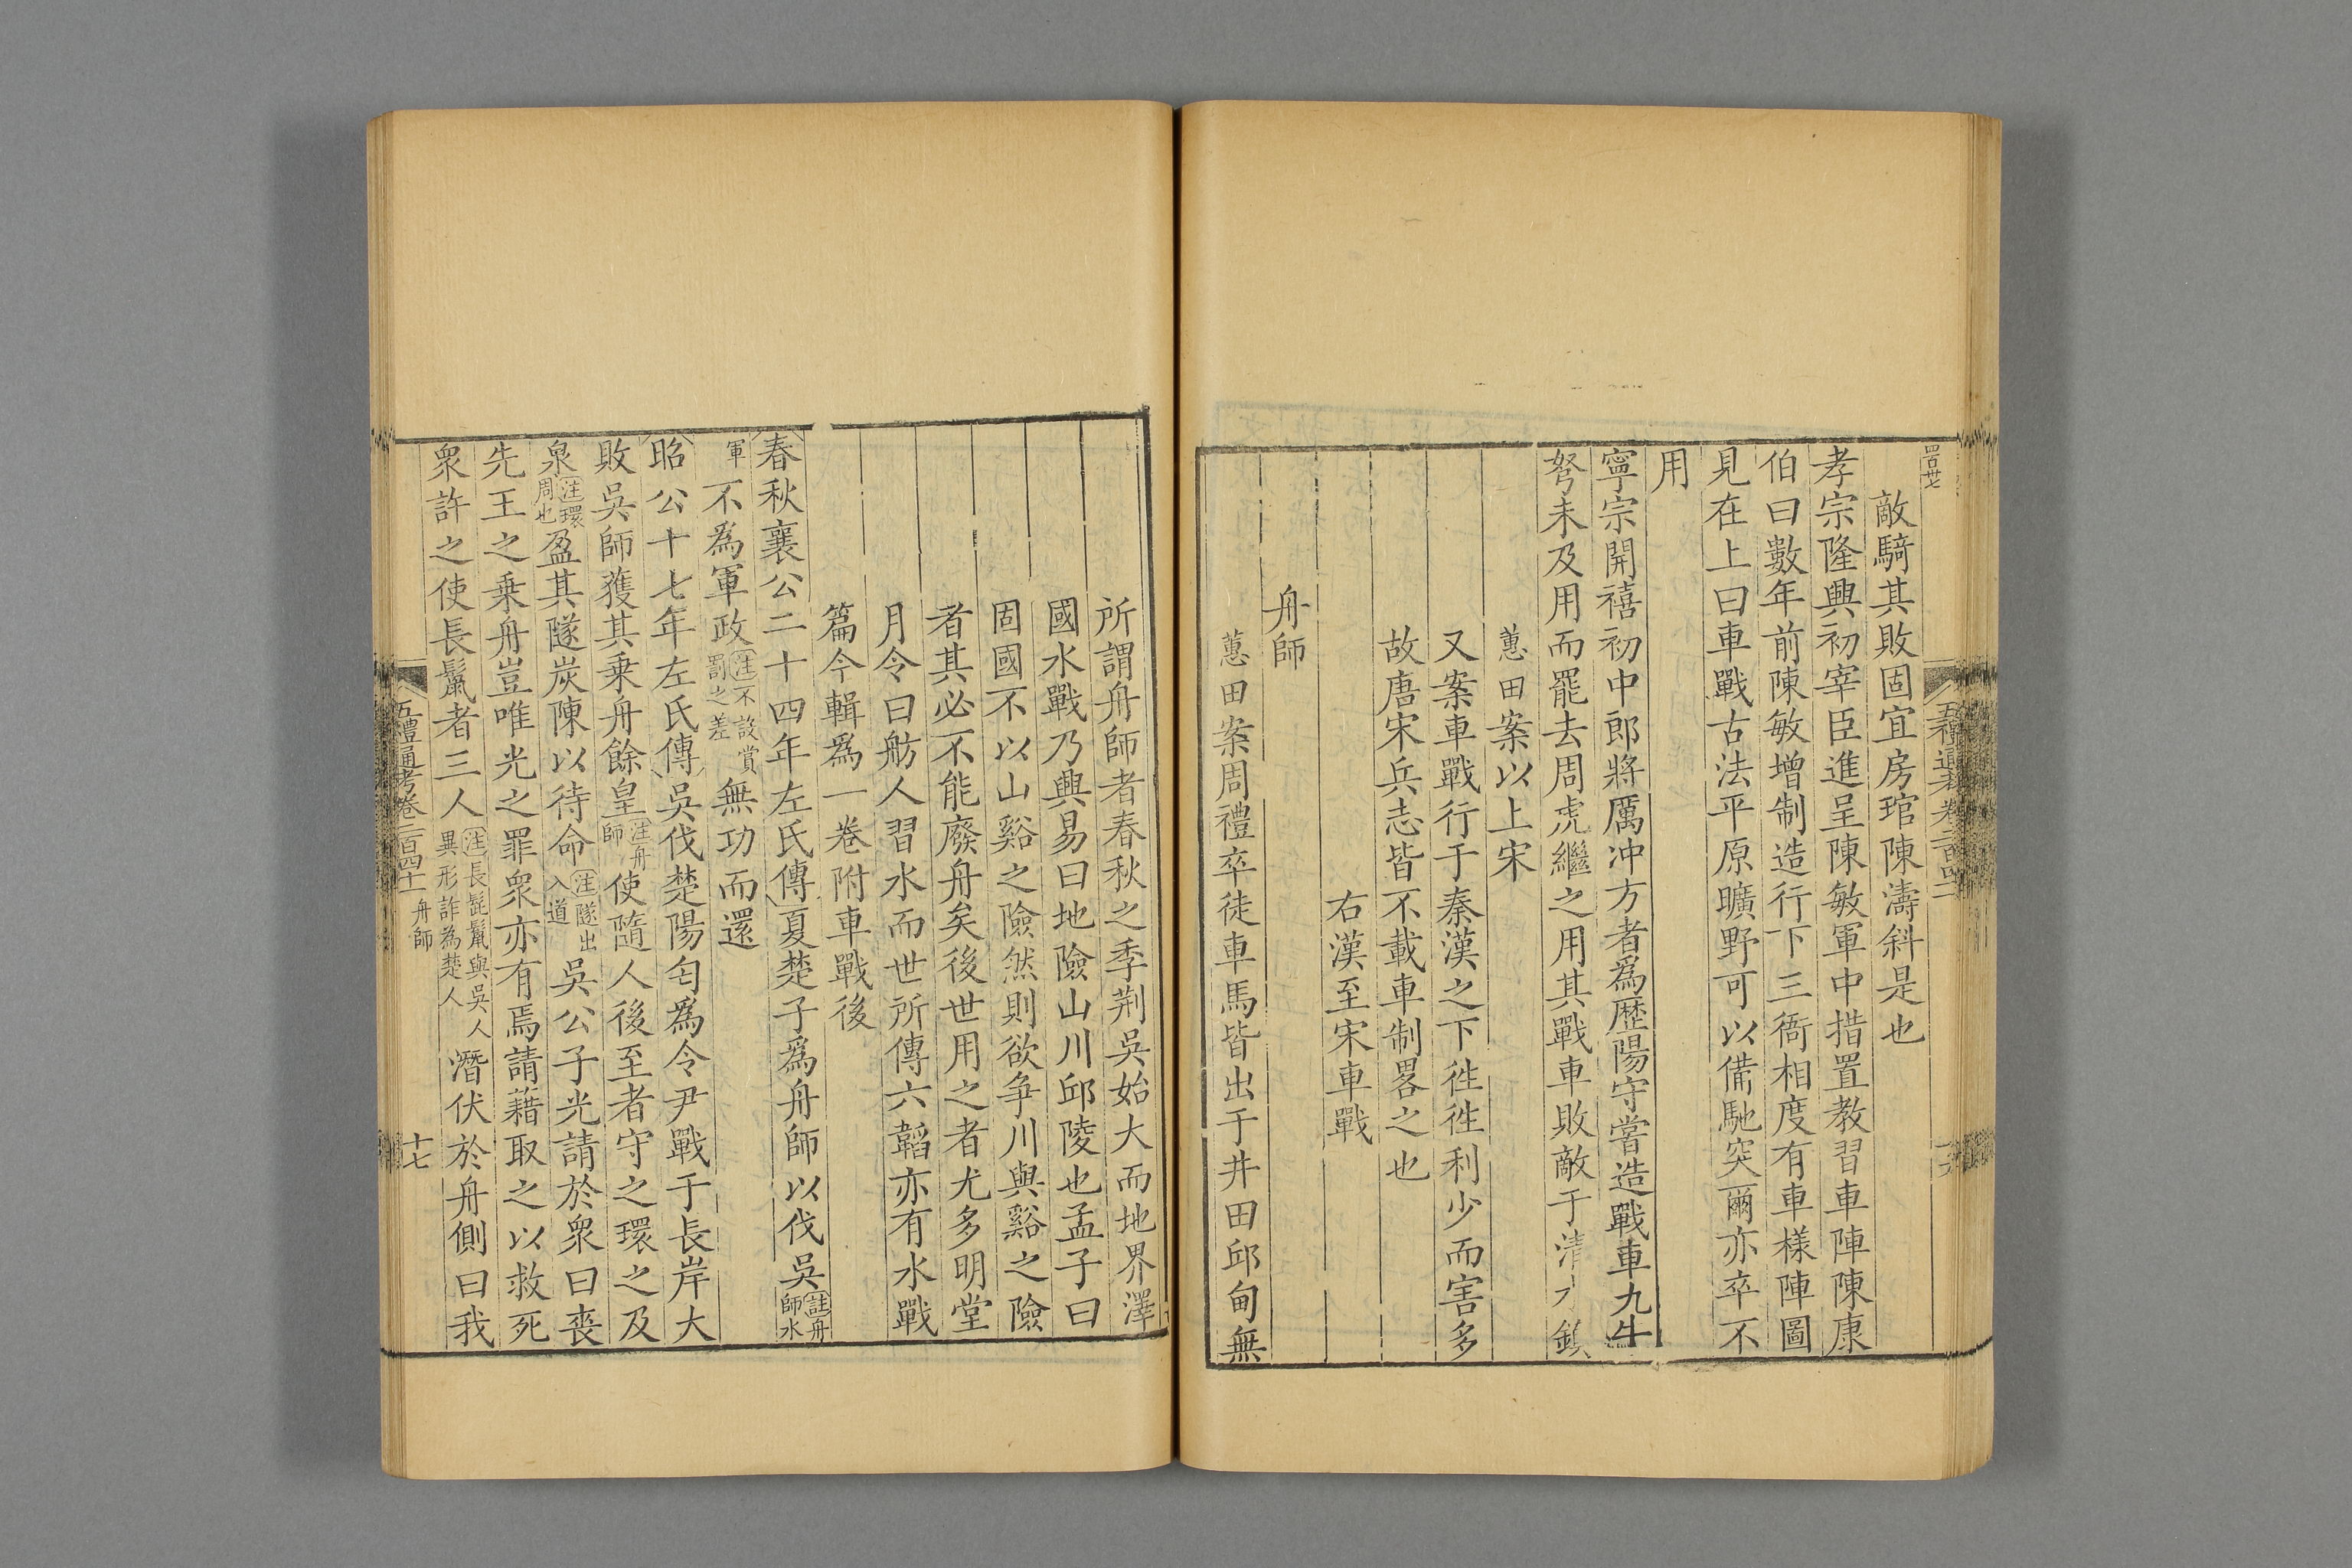 敵騎其敗固宜房琯陳濤斜是也
孝宗隆興初宰臣進呈陳敏軍中措置教習車陣陳康
伯曰數年前陳敏增制造行下三衙相度有車樣陣圖
見在上曰車戰古法平原曠野可以備馳突爾亦卒不
用
寧宗開禧初中郎將厲冲方者爲歴陽守嘗造戰車九牛
弩未及用而罷去周虎繼之用其戰車敗敵于清鎮
蕙田案以上宋
又案車戰行于秦漢之下徃徃利少而害多
故唐宋兵志皆不載車制畧之也
右漢至宋車戰
舟師
蕙田案周禮卒徒車馬皆出于井田邱甸無
所謂舟師者春秋之季荆吳始大而地界澤
國水戰乃興易曰地險山川邱陵也孟子曰
固國不以山谿之險然則欲爭川與谿之險
者其必不能廢舟矣後世用之者尤多明堂
月令曰舫人習水而世所傳六韜亦有水戰
篇今輯爲一卷附車戰後
春秋襄公二十四年左氏傳夏楚子爲舟師以伐吳註舟師水
軍不爲軍政注不設賞罰之差無功而還
昭公十七年左氏傳吳伐楚陽匄爲令尹戰于長岸大
敗吳師獲其乗舟餘皇注舟師使隨人後至者守之環之及
泉注環周也盈其隧炭陳以待命注隧出入道吳公子光請於衆曰喪
先王之乗舟豈唯光之罪衆亦有焉請藉取之以救死
衆許之使長鬣者三人注長髭鬣與吳人異形詐為楚人潛伏於舟側曰我
五禮通考卷二百四十一 舟師
十七